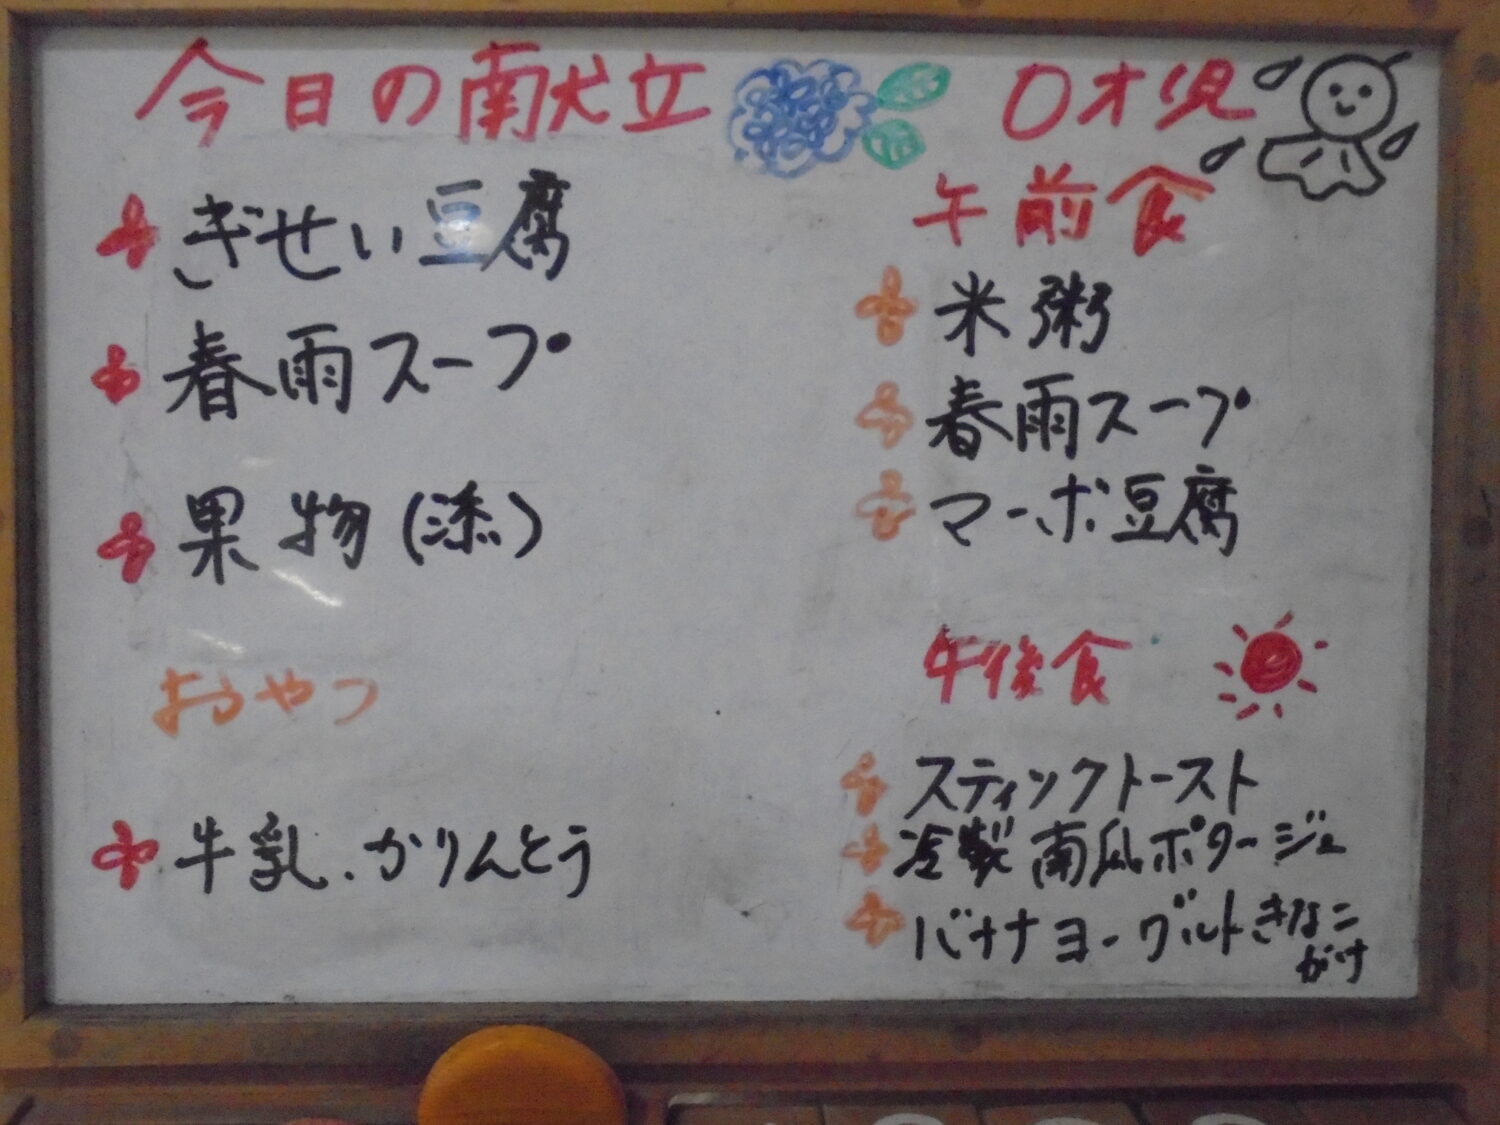 今日の献立
ぎせい豆腐
春雨スープ
果物(添)
おやつ
牛乳.かりんとう
0才児
午前食
米粥
春雨スープ
マーボ豆腐
午後食
スティックトースト
冷製南瓜ポタージュ
バナナヨーグルトきなこ
がけ